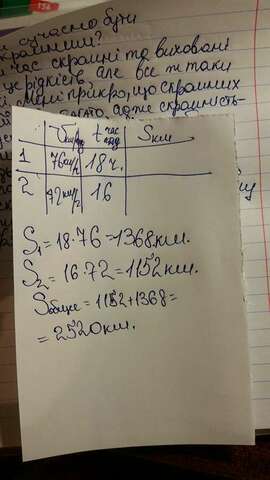 сучасно бути
скромним?
час скромні та виховані
це рідкість, але все ж таки
мені прикро, що скромних
адже скромність
t час S км
1 76км/г 18 ч.
2 72км/г 16
S₁ = 18·76 = 1368км.
S₂ = 16·72 = 1152 км.
Sобщее = 1152 + 1368 =
= 2520км.